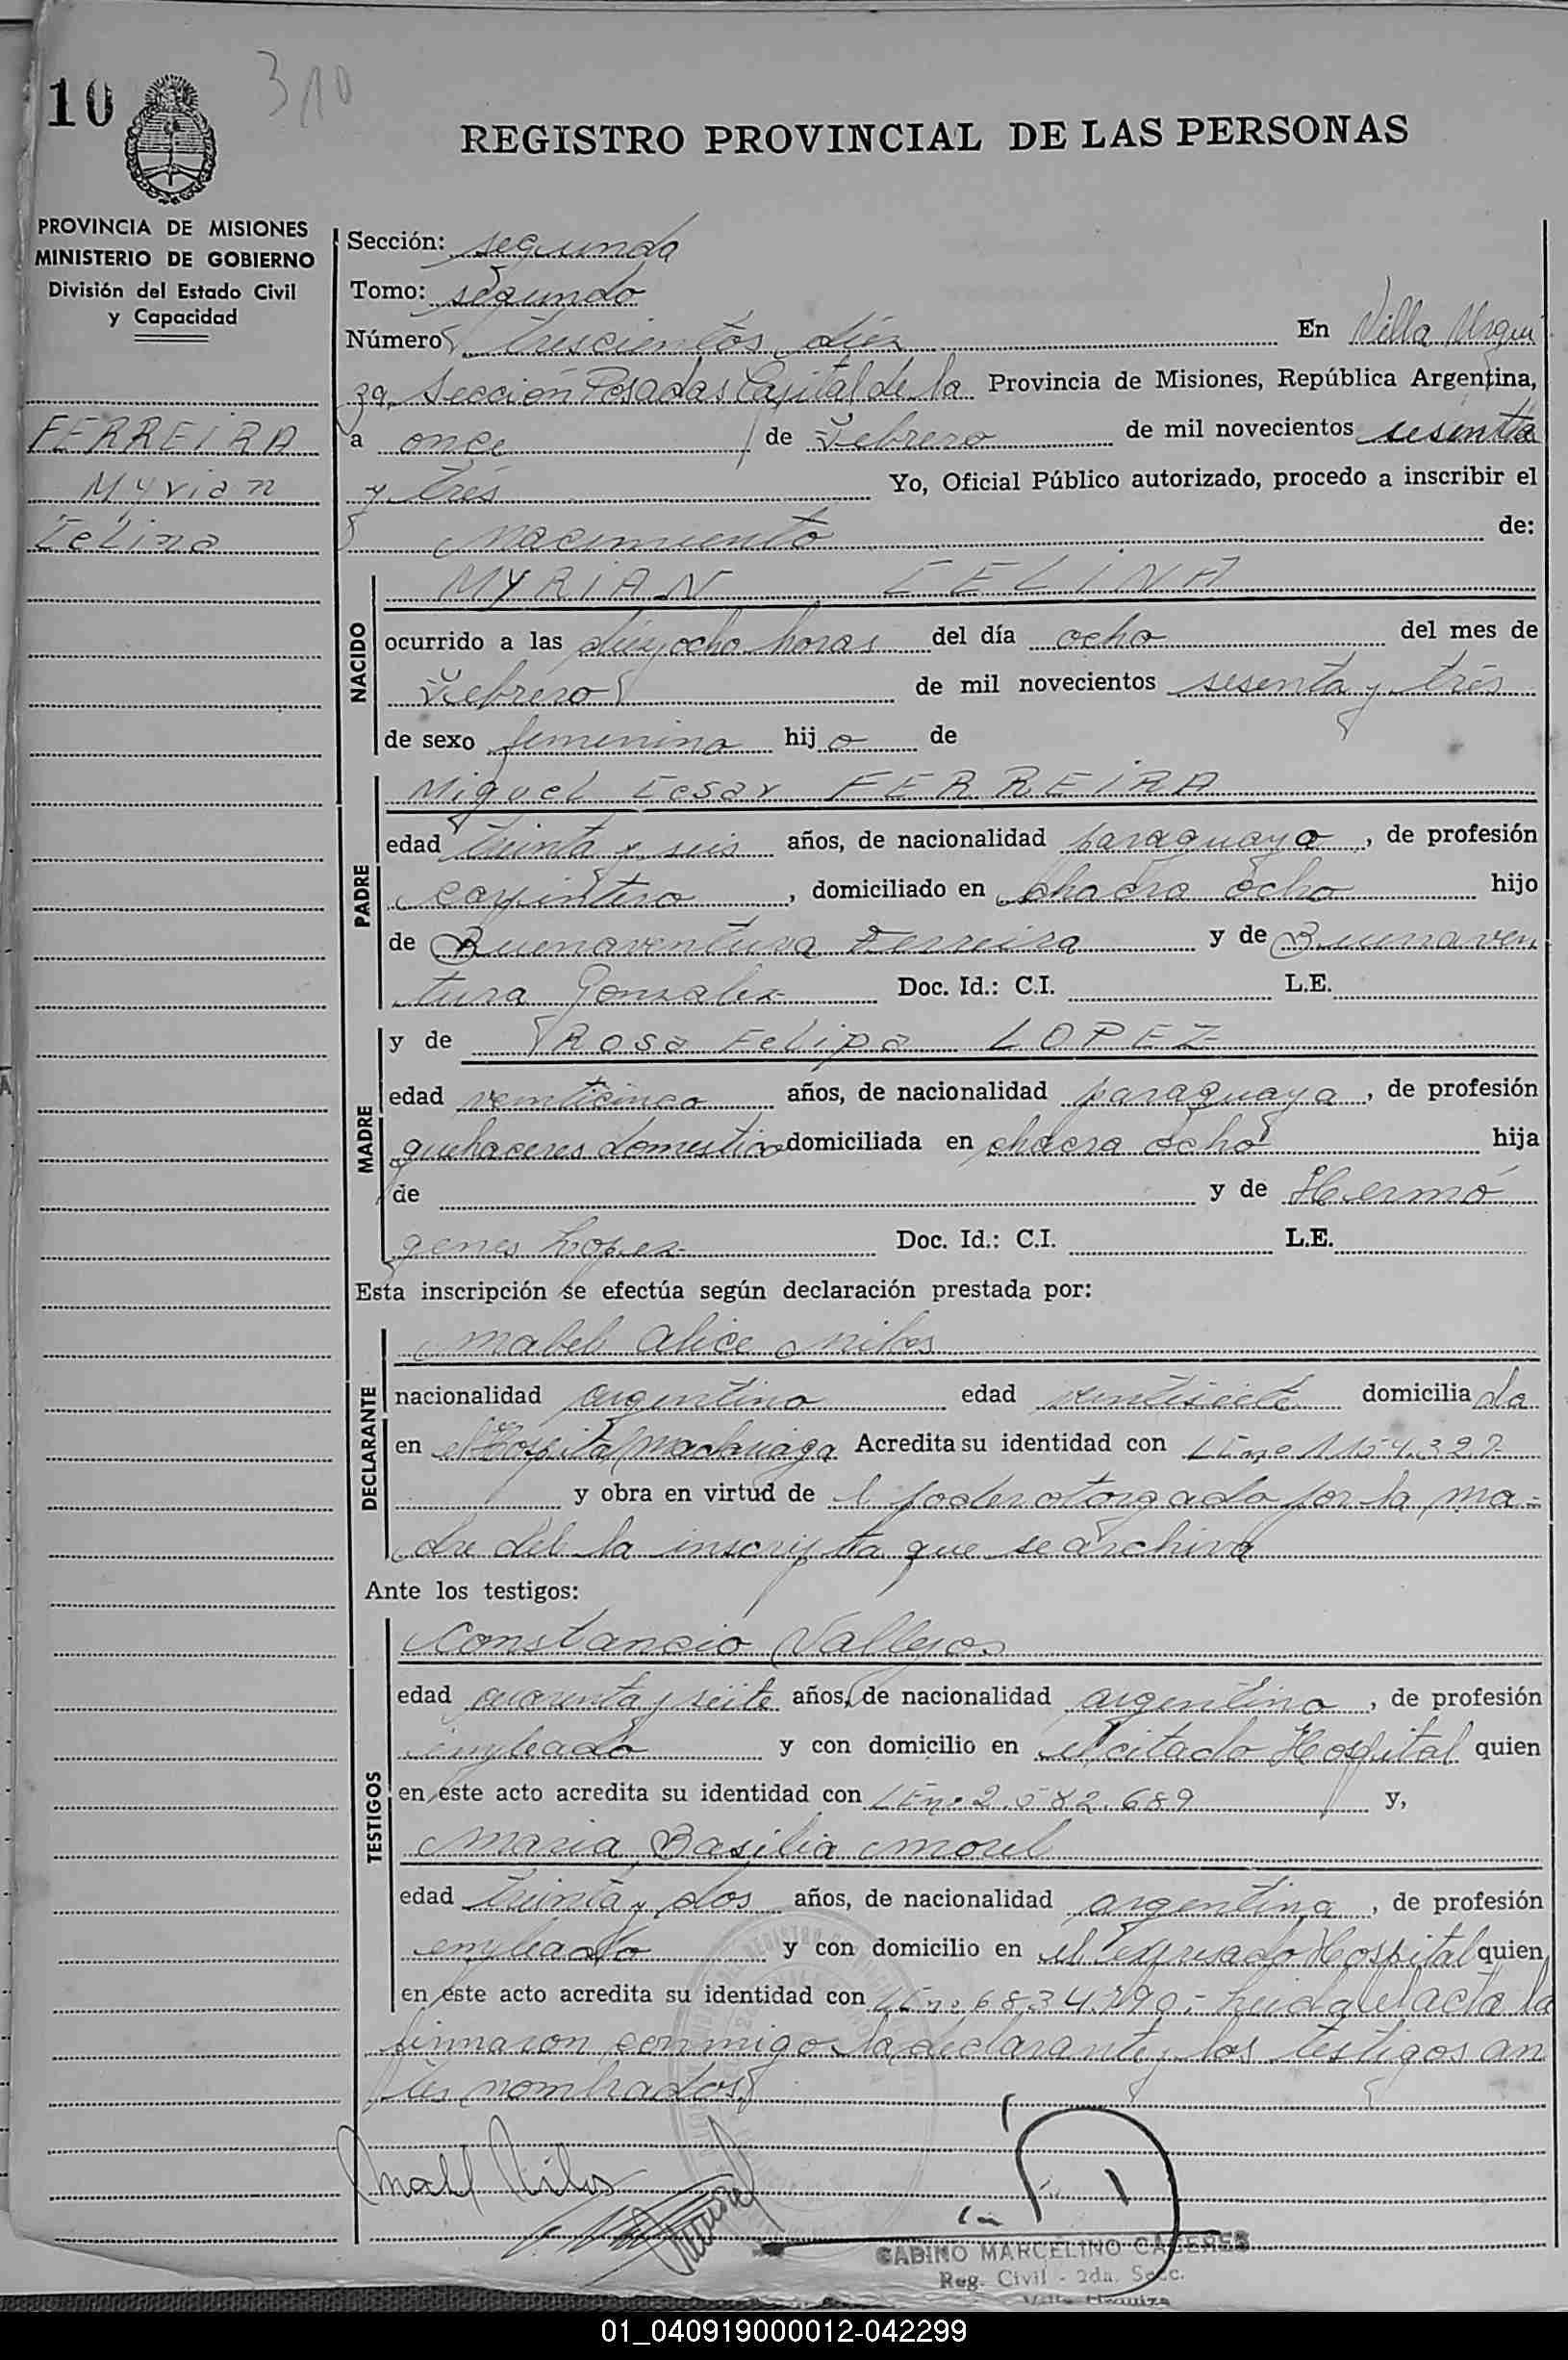 10
310
REGISTRO PROVINCIAL DE LAS PERSONAS
PROVINCIA DE MISIONES
MINISTERIO DE GOBIERNO
División del Estado Civil
y Capacidad
FERREIRA
Myrian
Celina
Sección: segunda
Tomo: segundo
Número trescientos diez En Villa Urqui
za, Sección Posadas Capital de la Provincia de Misiones, República Argentina,
a once de Febrero de mil novecientos sesenta
y tres Yo, Oficial Público autorizado, procedo a inscribir el
nacimiento de:
NACIDO
MYRIAN CELINA
ocurrido a las diez y ocho horas del día ocho del mes de
Febrero de mil novecientos sesenta y tres
de sexo femenino hij a de
PADRE
Miguel Cesar FERREIRA
edad treinta y seis años, de nacionalidad paraguaya, de profesión
carpintero, domiciliado en chacra ocho hijo
de Buenaventura Ferreira y de Buenaven
tura Gonzalez Doc. Id.: C.I. L.E.
MADRE
y de Rosa Felipa LOPEZ
edad veinticinco años, de nacionalidad paraguaya, de profesión
quehaceres domestico domiciliada en chacra ocho hija
de y de Hermó
genes Lopez Doc. Id.: C.I. L.E.
Esta inscripción se efectúa según declaración prestada por:
DECLARANTE
Mabel Alice
nacionalidad argentina edad veintisiete domicilia da
en el Hospital Madariaga Acredita su identidad con
y obra en virtud de l poder otorgado por la ma-
dre del la inscripta que se archiva
Ante los testigos:
TESTIGOS
Constancio Vallejos
edad cuarenta y siete años, de nacionalidad argentina, de profesión
empleado y con domicilio en el citado Hospital quien
en este acto acredita su identidad con LE nº 2.582.689 y,
Maria Basilia Morel
edad treinta y dos años, de nacionalidad argentina, de profesión
empleado y con domicilio en el expresado Hospital quien
en este acto acredita su identidad con Leida el acta la
firmaron conmigo la declarante y los testigos an
tes nombrados
GABINO MARCELINO CACERES
Reg. Civil - 2da. Secc.
Villa Urquiza
01_040919000012-042299